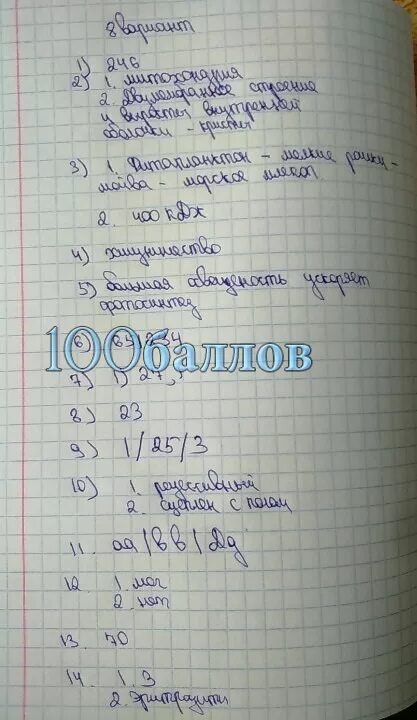 8 вариант
1) 246
2) 1. митохондрия
2. Двумембранное строение
и выросты внутренней
оболочки - кристы
3) 1. Фитопланктон - мелкие рачки -
мойва - морское млекоп.
2. 400 кДж
4) хищничество
5) большая освещеность ускоряет
фотосинтез
6)
100баллов
7) 1) 27,
8) 23
9) 1/25/3
10) 1. рецессивный
2. сцеплен с полом
11. аа/вв/Dd
12. 1. мог
2. нет
13. 70
14. 1. 3
2. Эритроциты